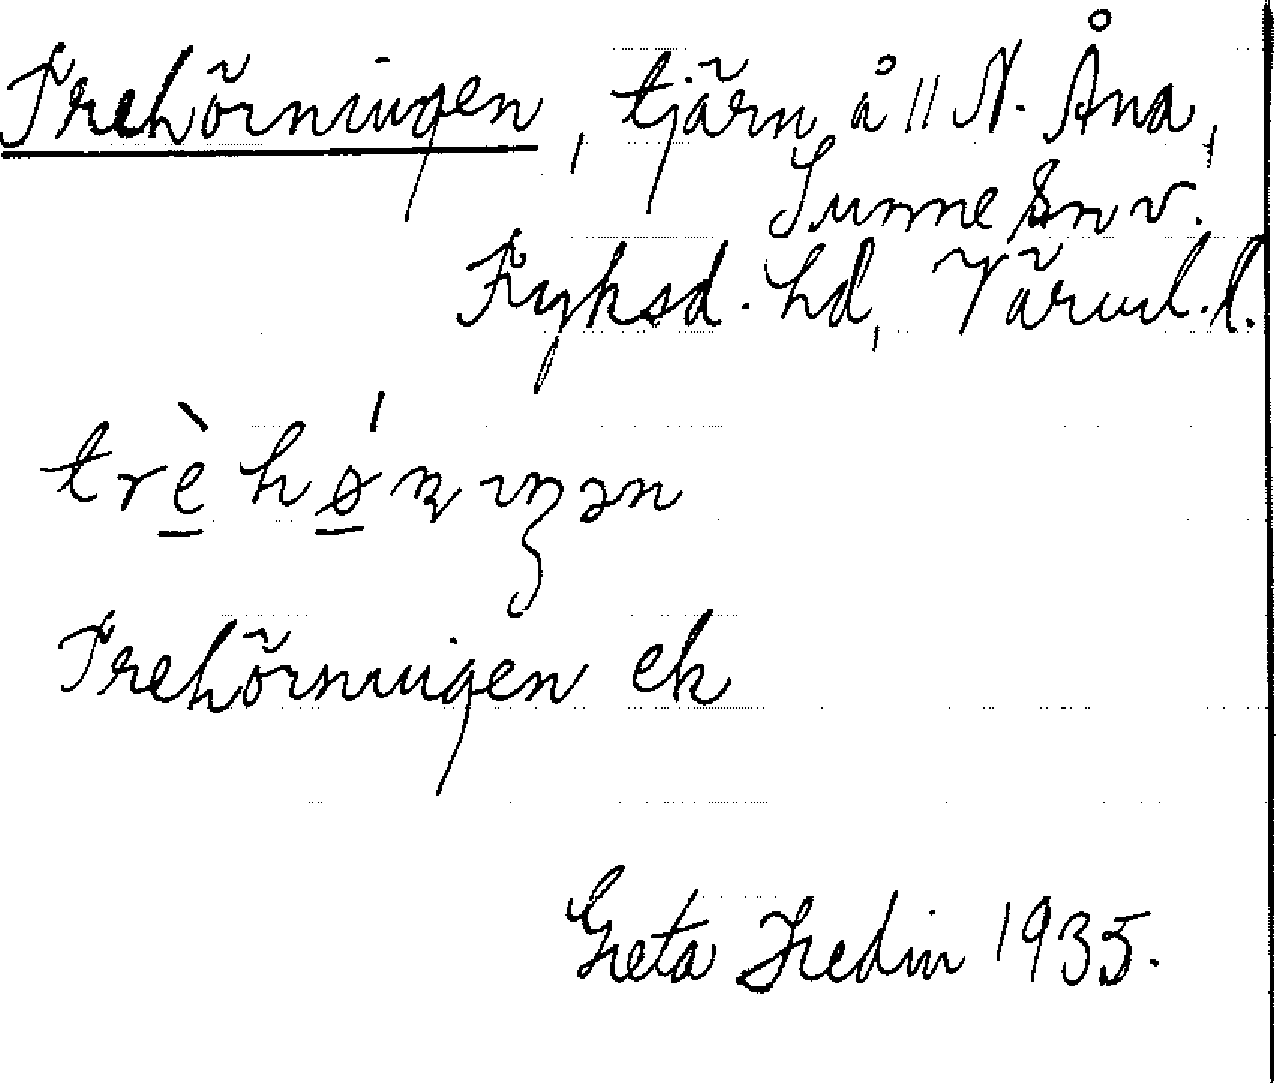 Trehörningen, tjärn, å || N. Åna,
Sunne sn v.
Fryksd. hd, Värml. l.
trèhǿɳɩŋən
Trehörningen ek
Greta Hedin 1935.